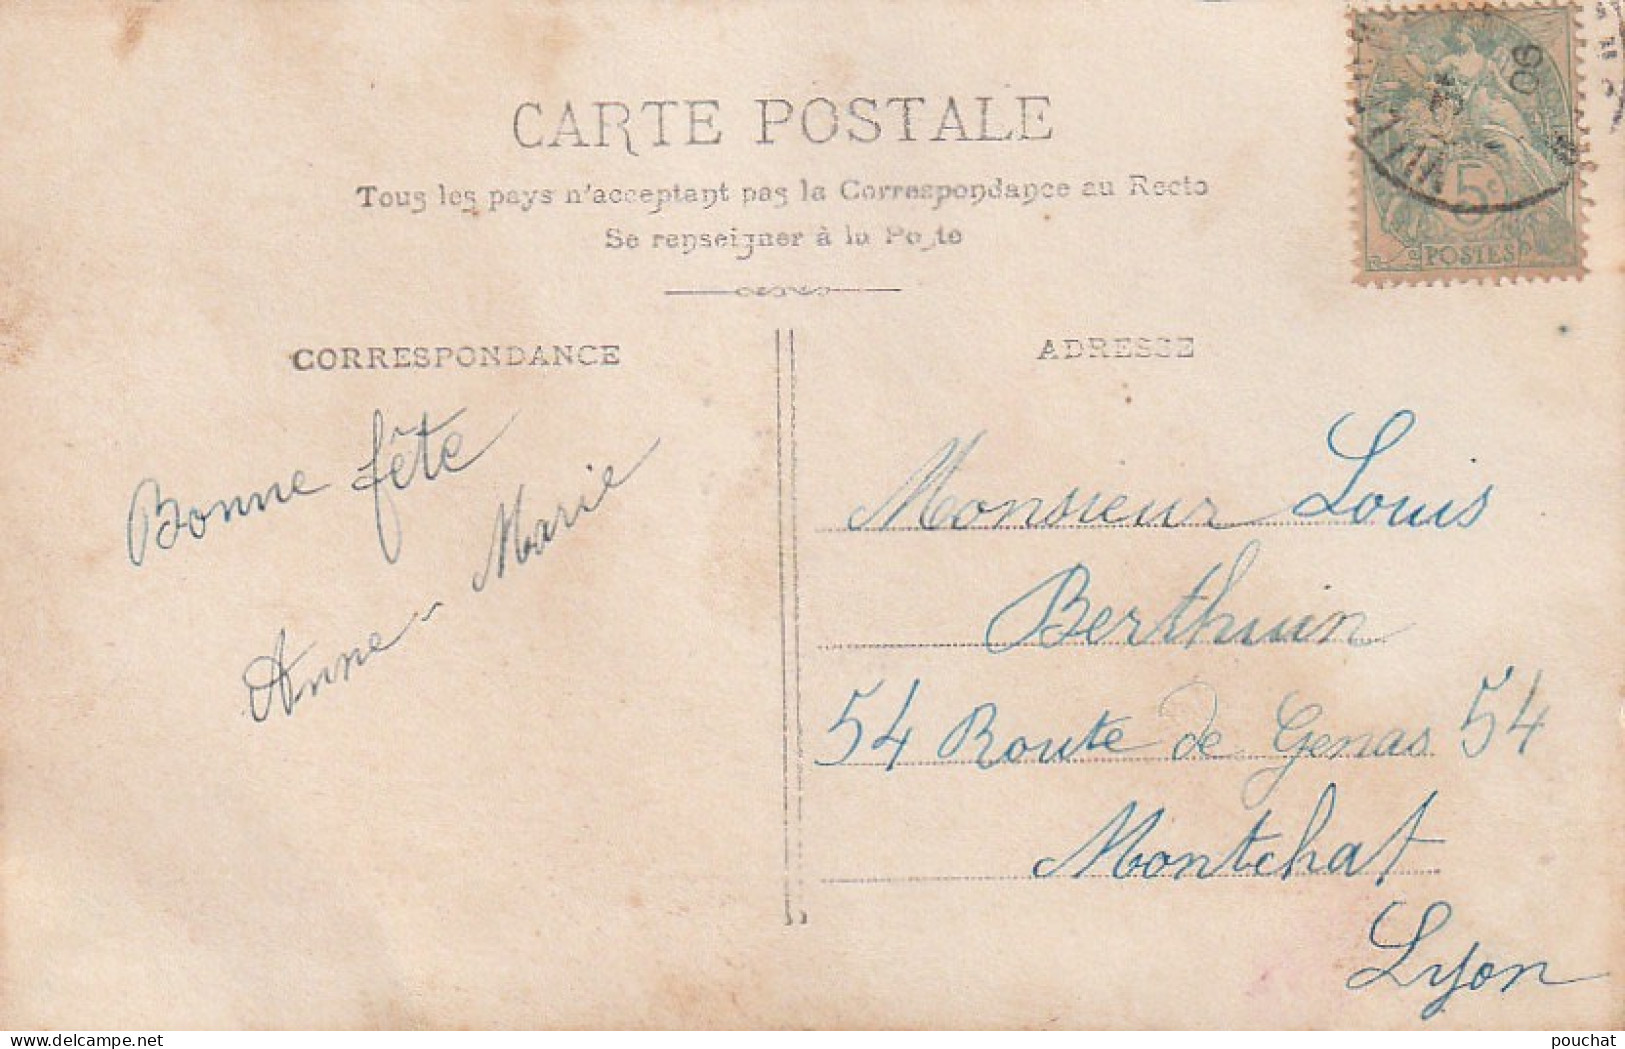 CARTE POSTALE
Tous les pays n'acceptant pas la Correspondance au Recto
Se renseigner à la Poste
06
5c
POSTES
CORRESPONDANCE
ADRESSE
Bonne fête
Anne-Marie
Monsieur Louis
Berthuin
54 Route de Genas 54
Montchat
Lyon
delcampe.net
pouchat